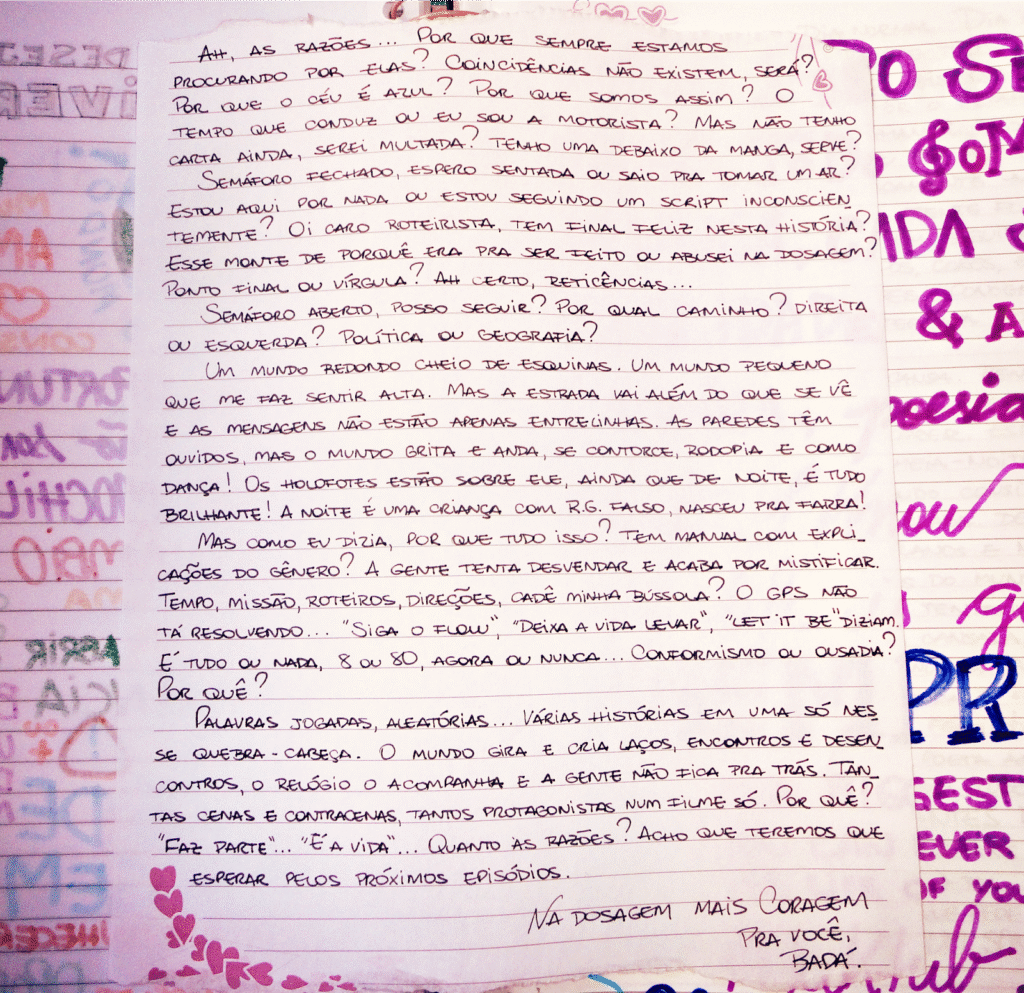 Ah, as razões... Por que sempre estamos
procurando por elas? Coincidências não existem, será?
Por que o céu é azul? Por que somos assim? O
tempo que conduz ou eu sou a motorista? Mas não tenho
carta ainda, serei multada? Tenho uma debaixo da manga, serve?
Semáforo fechado, espero sentada ou saio pra tomar um ar?
Estou aqui por nada ou estou seguindo um script inconscien
temente? Oi caro roteirista, tem final feliz nesta história?
Esse monte de porquê era pra ser feito ou abusei na dosagem?
Ponto final ou vírgula? Ah certo, reticências...
Semáforo aberto, posso seguir? Por qual caminho? Direita
ou esquerda? Política ou geografia?
Um mundo redondo cheio de esquinas. Um mundo pequeno
que me faz sentir alta. Mas a estrada vai além do que se vê
e as mensagens não estão apenas entrelinhas. As paredes têm
ouvidos, mas o mundo grita e anda, se contorce, rodopia e como
dança! Os holofotes estão sobre ele, ainda que de noite, é tudo
brilhante! A noite é uma criança com R.G. falso, nasceu pra farra!
Mas como eu dizia, por que tudo isso? Tem manual com expli_
cações do gênero? A gente tenta desvendar e acaba por mistificar.
Tempo, missão, roteiros, direções, cadê minha bússola? O GPS não
tá resolvendo... "Siga o flow", "Deixa a vida levar", "Let it be" diziam.
É tudo ou nada, 8 ou 80, agora ou nunca... Conformismo ou ousadia?
Por quê?
Palavras jogadas, aleatórias... Várias histórias em uma só nes
se quebra-cabeça. O mundo gira e cria laços, encontros e desen_
contros, o relógio o acompanha e a gente não fica pra trás. Tan_
tas cenas e contracenas, tantos protagonistas num filme só. Por quê?
"Faz parte"... "É a vida"... Quanto às razões? Acho que teremos que
esperar pelos próximos episódios.
Na dosagem mais Coragem
pra você,
Badá.
& A
poesia
PR
GEST
EVER
OF YOU